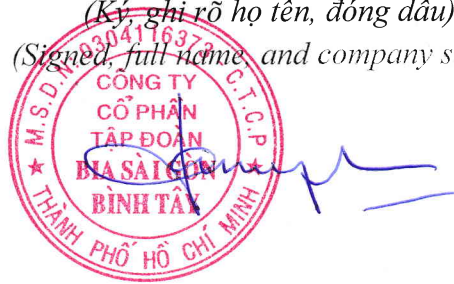 (Ký, ghi rõ họ tên, đóng dấu)
(Signed, full name, and company s
M.S.D.N: 0304116373 - C.T.C.P
CÔNG TY
CỔ PHẦN
TẬP ĐOÀN
BIA SÀI GÒN
BÌNH TÂY
★ THÀNH PHỐ HỒ CHÍ MINH ★